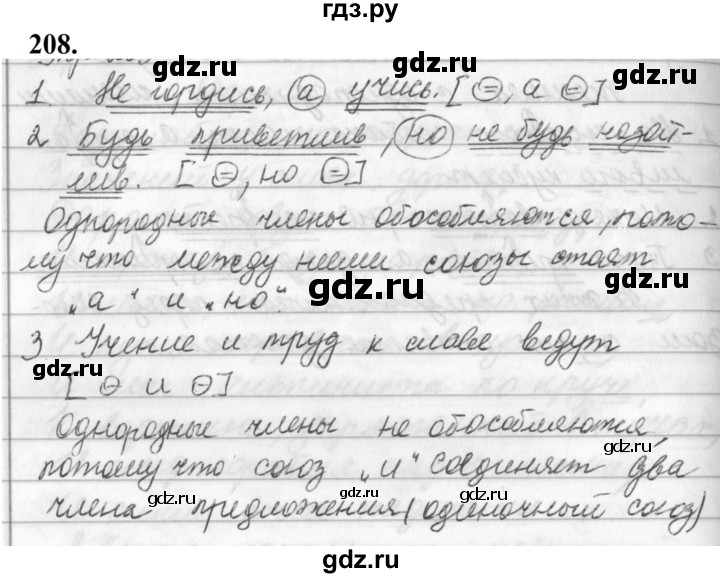 гдз.ру
208.
gdz.ru gdz.ru
1. Не гордись, а учись. [=, а =]
2 Будь приветлив, но не будь назой-
лив. [=, но =]
gdz.ru gdz.ru
Однородные члены обособляются, пото-
му что между ними союзы стоят
gdz.ru
„а" и „но".
gdz.ru
3 Учение и труд к славе ведут
gdz.ru gdz.ru
[- и -]
Однородные члены не обособляются,
gdz.ru
потому что союз „и" соединяет два
gdz.ru gdz.ru gdz.ru
члена предложения (одиночный союз)
gdz.ru